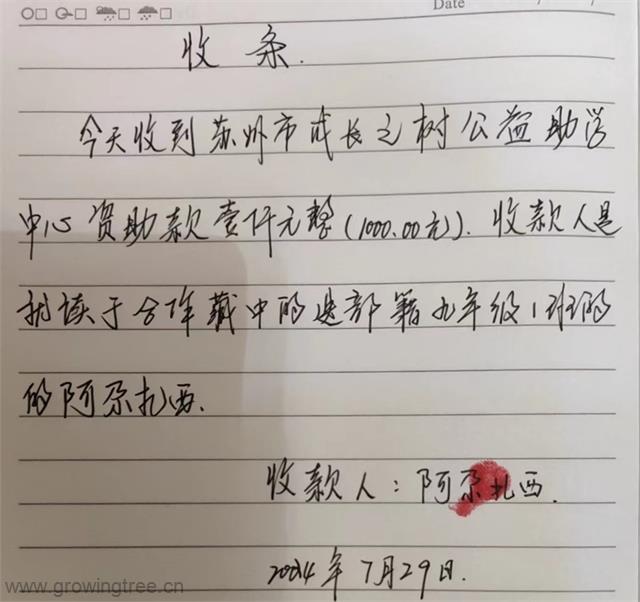 Date
收条.
今天收到苏州市成长之树公益助学
中心资助款壹仟元整(1000.00元). 收款人是
就读于合作藏中的迭部籍九年级1班的
的阿尕扎西.
收款人：阿尕扎西.
2024年7月29日.
www.growingtree.cn